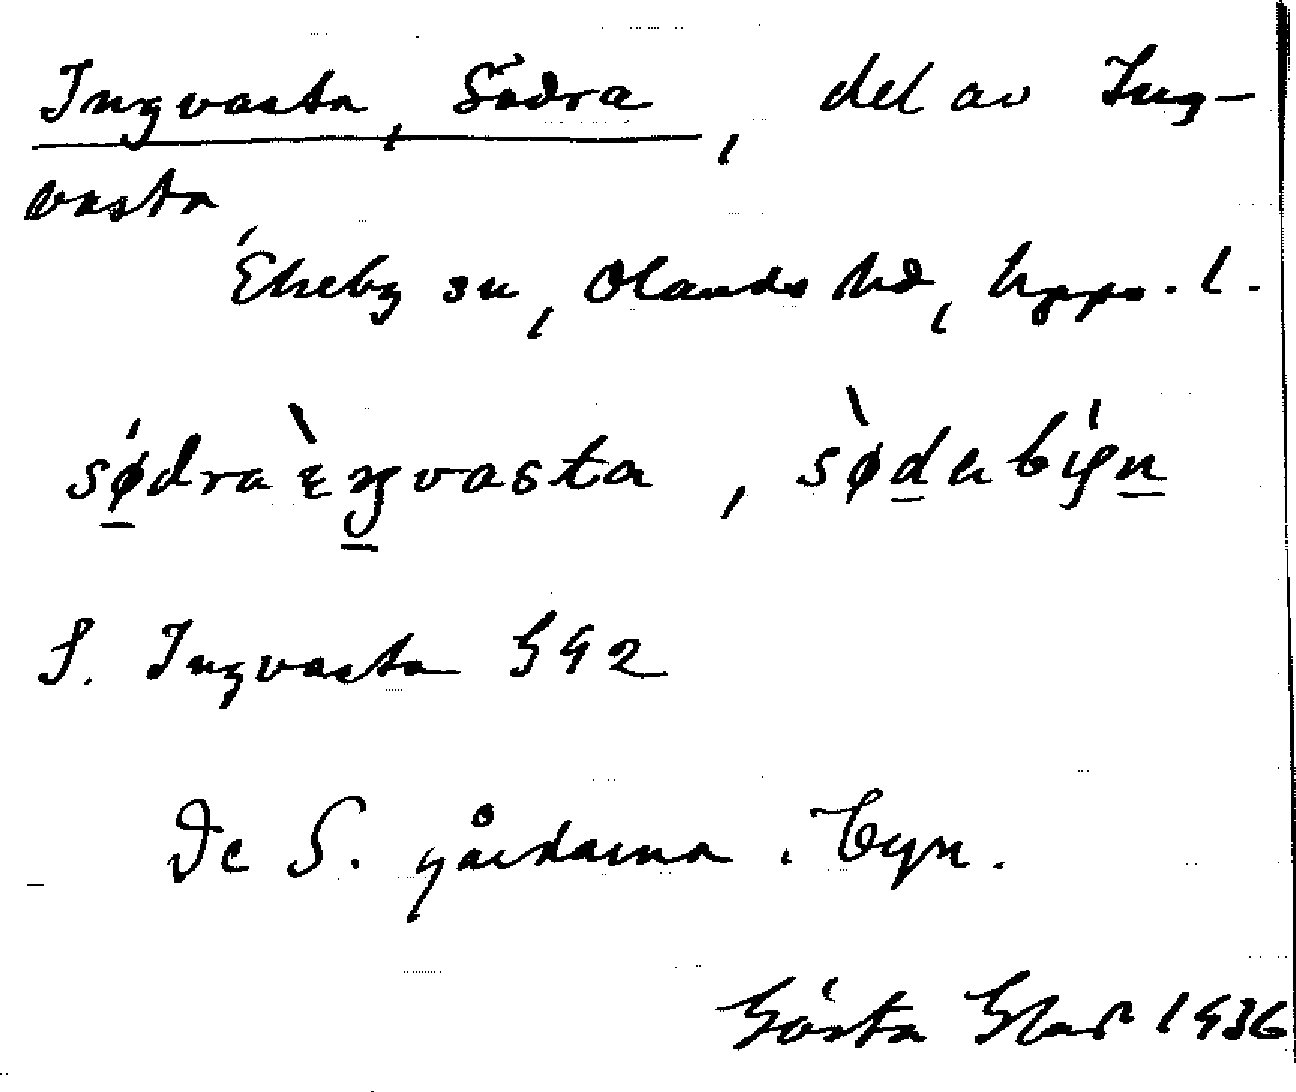 Ingvasta, Södra, del av Ing-
vasta
Ekeby sn, Olands hd, Upps. l.
sødra ὲŋvasta, sødabýn
S. Ingvasta GS2
De S. gårdarna i byn.
Gösta
1936